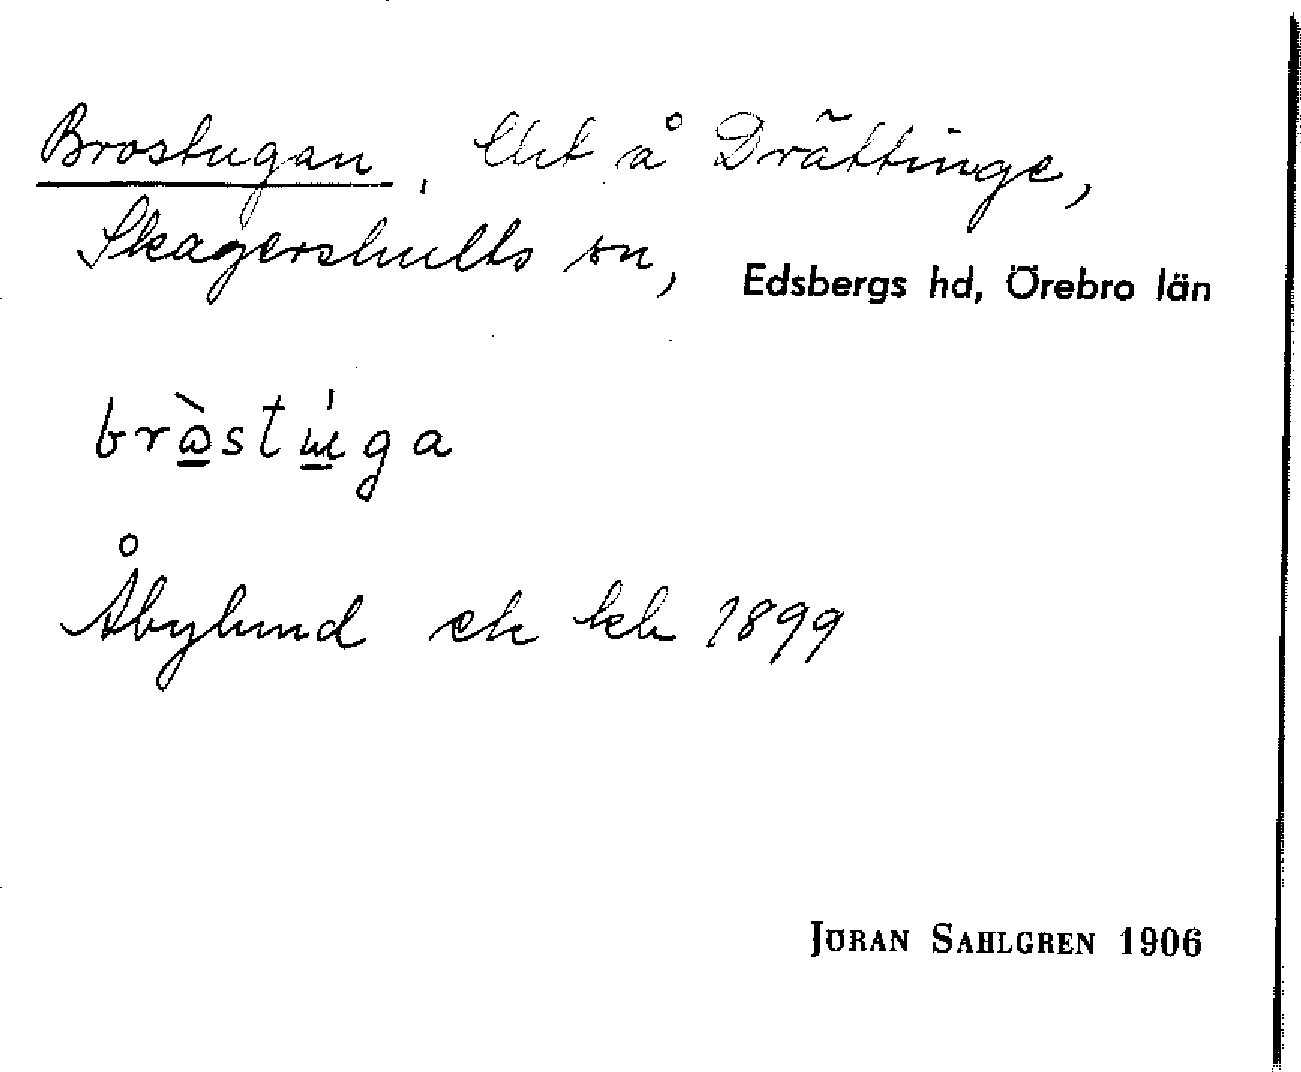 Brostugan, lht å Drättinge,
Skagershults sn,
Edsbergs hd, Örebro län
Åbylund ek kh 1899
JÖRAN SAHLGREN 1906